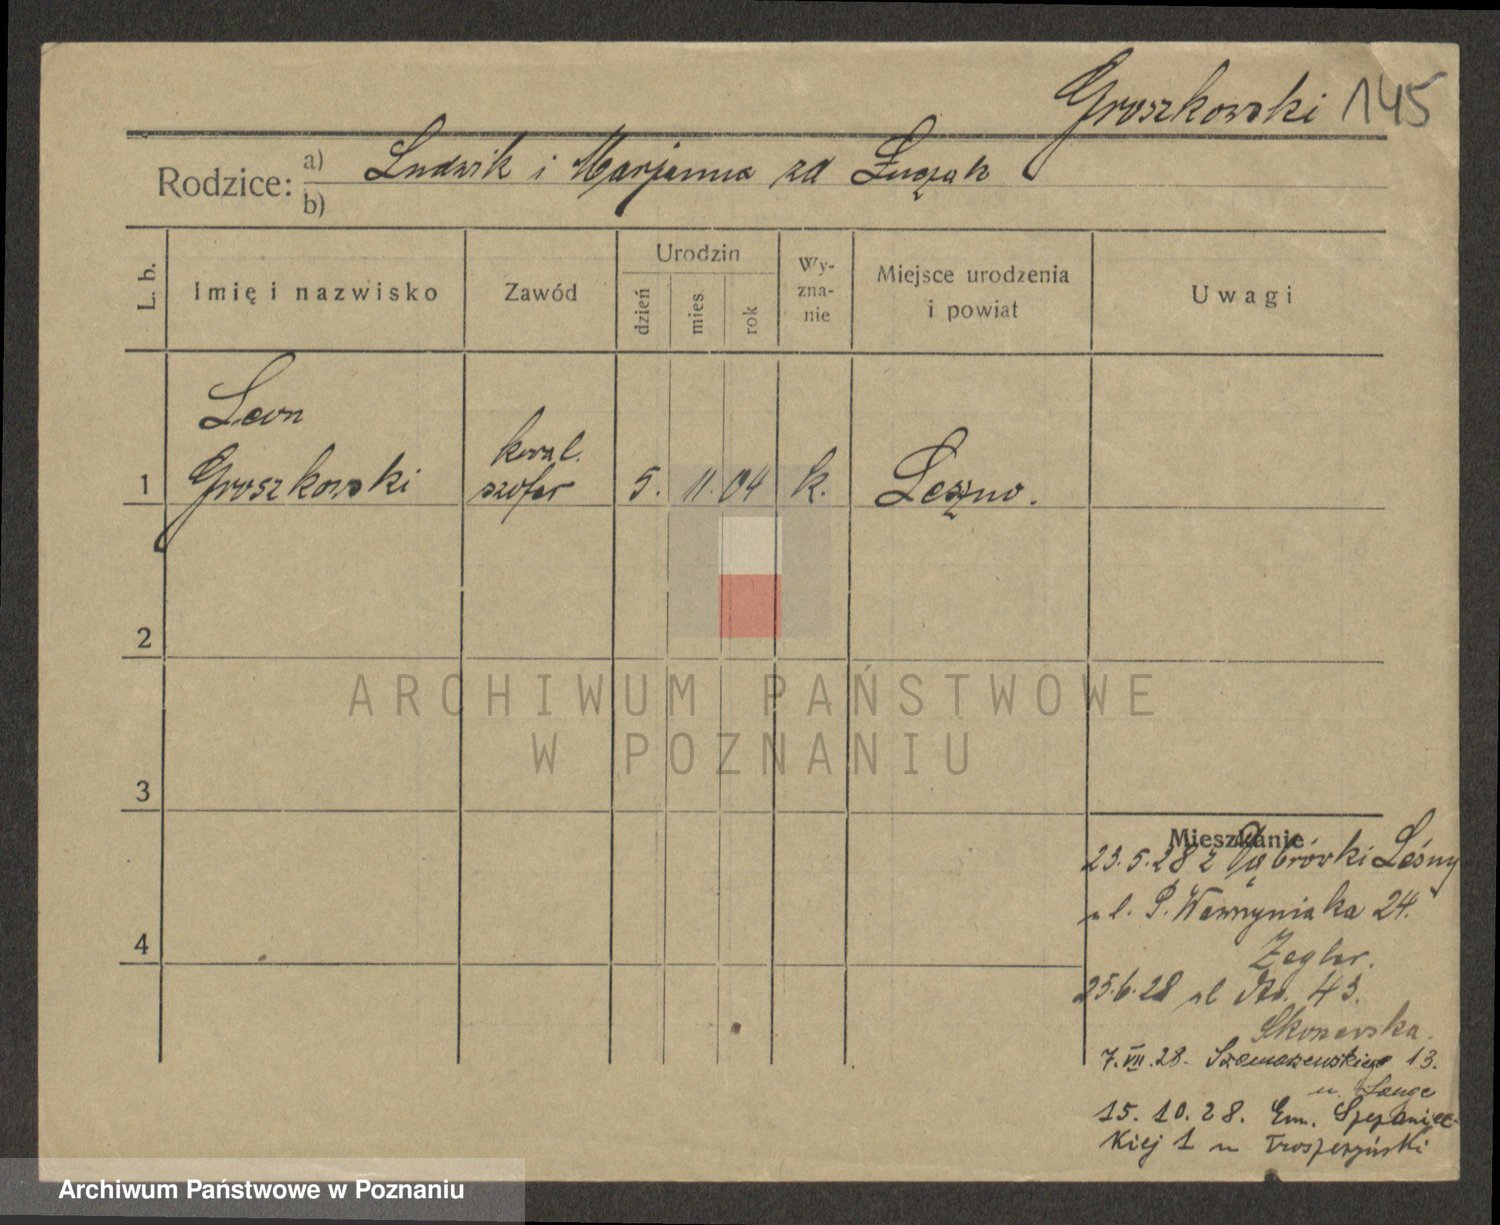 Groszkowski 145
Rodzice: a) Ludwik i Marjanna zd Łuczak
b)
L. b. Imię i nazwisko Zawód Urodzin dzień mies rok Wyznanie Miejsce urodzenia i powiat Uwagi
Leon
kowal.
1 Groszkowski szofer 5. 11. 04 k. Leszno.
2
ARCHIWUM PAŃSTWOWE
W POZNANIU
3
Mieszkanie
23.5.28 z Dąbrówki Leśny
ul. P. Wawrzyniaka 24.
4
Zegler.
25.6.28 ul 43.
7.VII.28. Szamarzewskiego 13.
u. Lange
15.10.28. Em. Szczaniec-
kiej 1 u
Archiwum Państwowe w Poznaniu